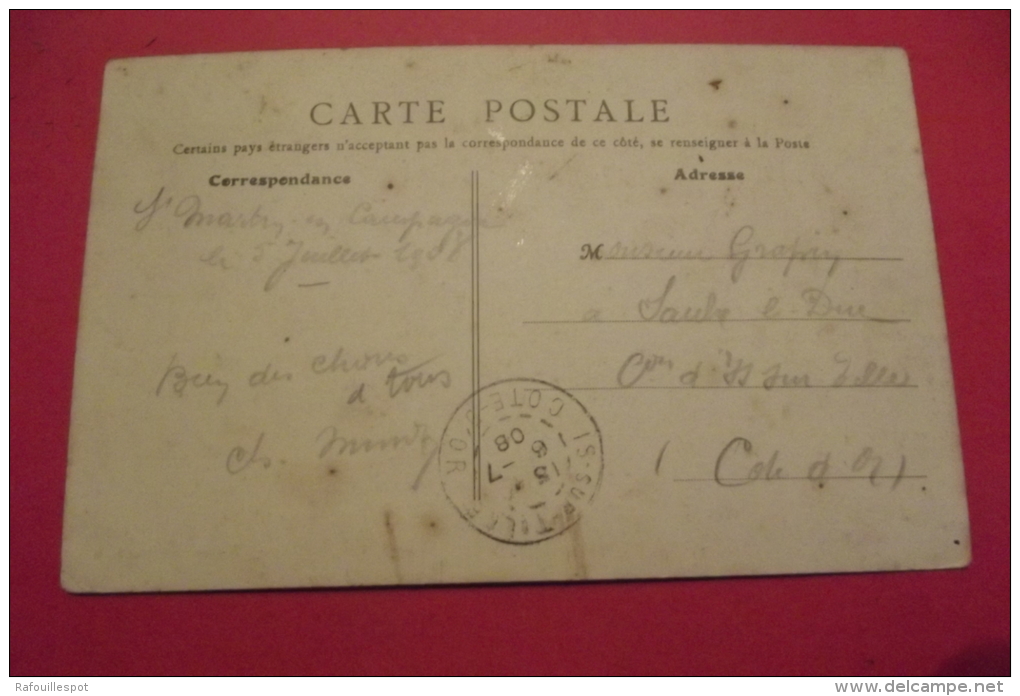 CARTE POSTALE
Certains pays étrangers n'acceptant pas la correspondance de ce côté, se renseigner à la Poste
Correspondance
St Martin en Campagne
le 5 Juillet 1908
Bien des choses
à tous
Ch.
Adresse
Monsieur Grapin
à Saulx le Duc
Con d'Is sur Tille
(Cote d'Or)
IS-SUR-TILLE
COTE-D'OR
7
08
Rafouillespot
www.delcampe.net